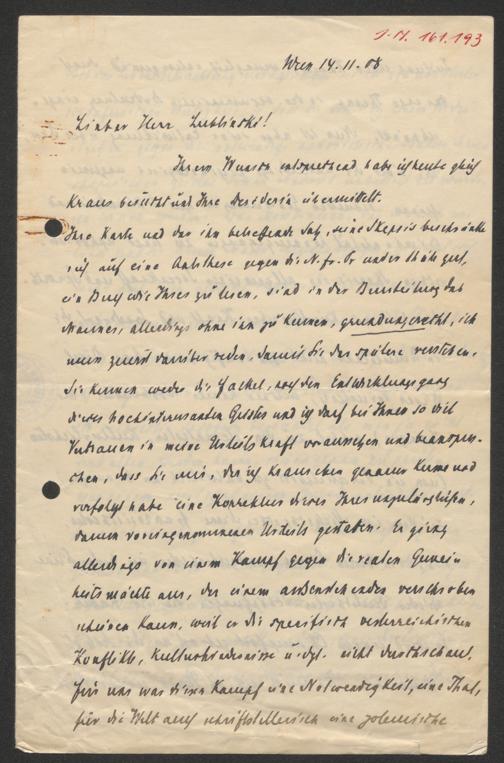 J.N. 161.193
Wien 14.11.08
Lieber Herr Lublinski!
Ihrem Wunsch entsprechend habe ich heute gleich
Kraus besucht und Ihre Desiderien übermittelt.
Ihre Karte und der ihn betreffende Satz, seine Skepsis beschränke
sich auf eine Antithese gegen die N. fr. Pr. und er
ein Buch wie Ihres zu lesen, sind in der Beurteilung des
Mannes, allerdings ohne ihn zu kennen, grundungerecht, ich
muss zuerst darüber reden, damit Sie das spätere verstehen.
Sie kennen weder die Fackel, noch den Entwicklungsgang
dieses hochinteressanten Geistes und ich darf bei Ihnen so viel
Vertrauen in meine Urteilskraft voraussetzen und beanspru-
chen, dass Sie mir, der ich Kraus eben genauer kenne und
verfolgt habe eine Korrektur dieses Ihres
darum voreingenommenen Urteils gestatten. Er gieng
allerdings von einem Kampf gegen die realen Gemein
heitsmächte aus, der einem außenstehenden verschroben
scheinen kann, weil er die spezifisch oesterreichischen
Konflikte, Kulturhindernisse u. dgl. nicht durchschaut.
Für uns war dieser Kampf eine Notwendigkeit, eine That,
für die Welt auch schriftstellerisch eine polemische